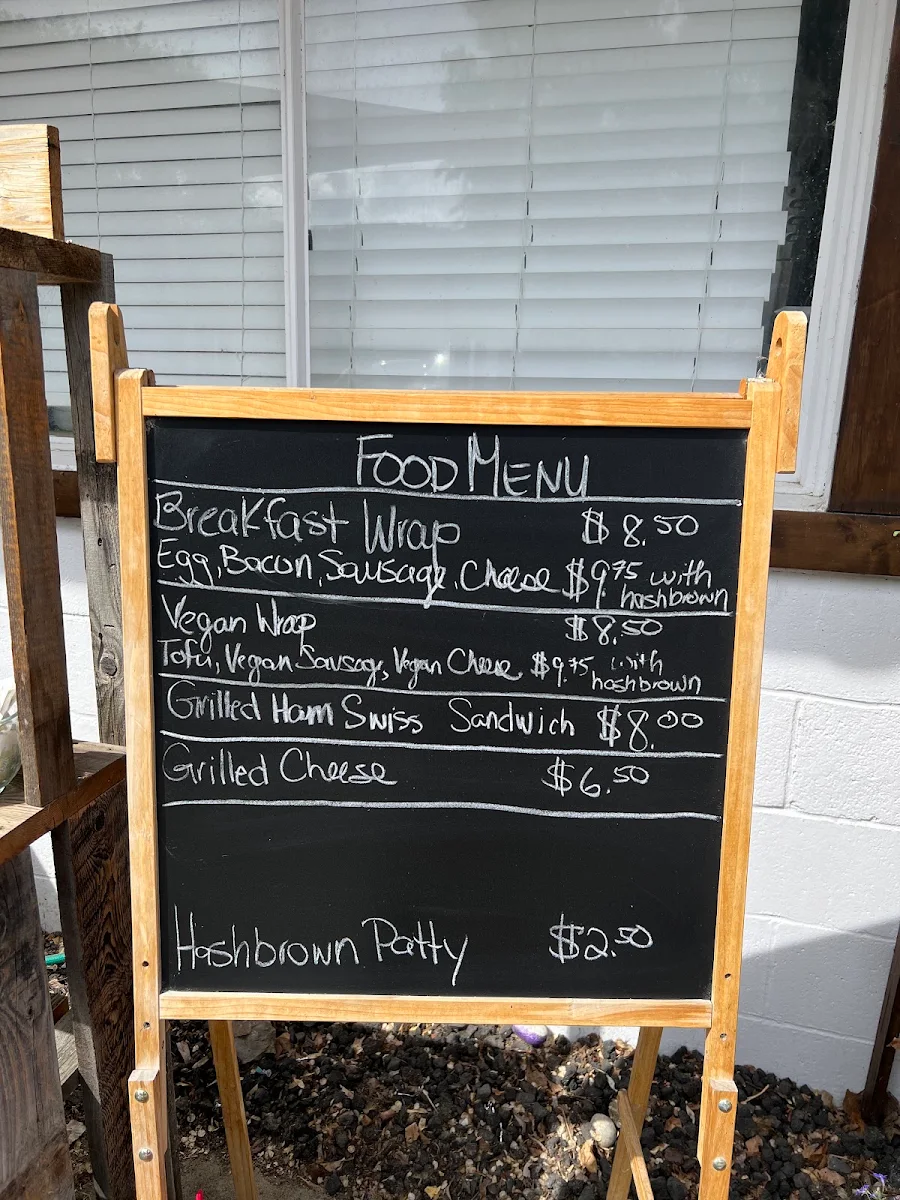 FOOD MENU
Breakfast Wrap $8.50
Egg, Bacon, Sausage, Cheese $9.75 with hashbrown
Vegan Wrap $8.50
Tofu, Vegan Sausage, Vegan Cheese $9.75 with hashbrown
Grilled Ham Swiss Sandwich $8.00
Grilled Cheese $6.50
Hashbrown Patty $2.50